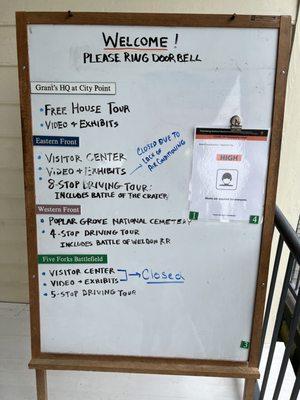 WELCOME!
PLEASE RING DOORBELL
Grant's HQ at City Point
• FREE HOUSE TOUR
• VIDEO + EXHIBITS
Eastern Front
• VISITOR CENTER
• VIDEO + EXHIBITS
CLOSED DUE TO
LOSS OF
AIR CONDITIONING
• 8-STOP DRIVING TOUR:
INCLUDES BATTLE OF THE CRATER
Western Front
• POPLAR GROVE NATIONAL CEMETERY
• 4-STOP DRIVING TOUR
INCLUDES BATTLE OF WELDON RR
Five Forks Battlefield
• VISITOR CENTER
• VIDEO + EXHIBITS
→ Closed
• 5-STOP DRIVING TOUR
HIGH
1
4
3